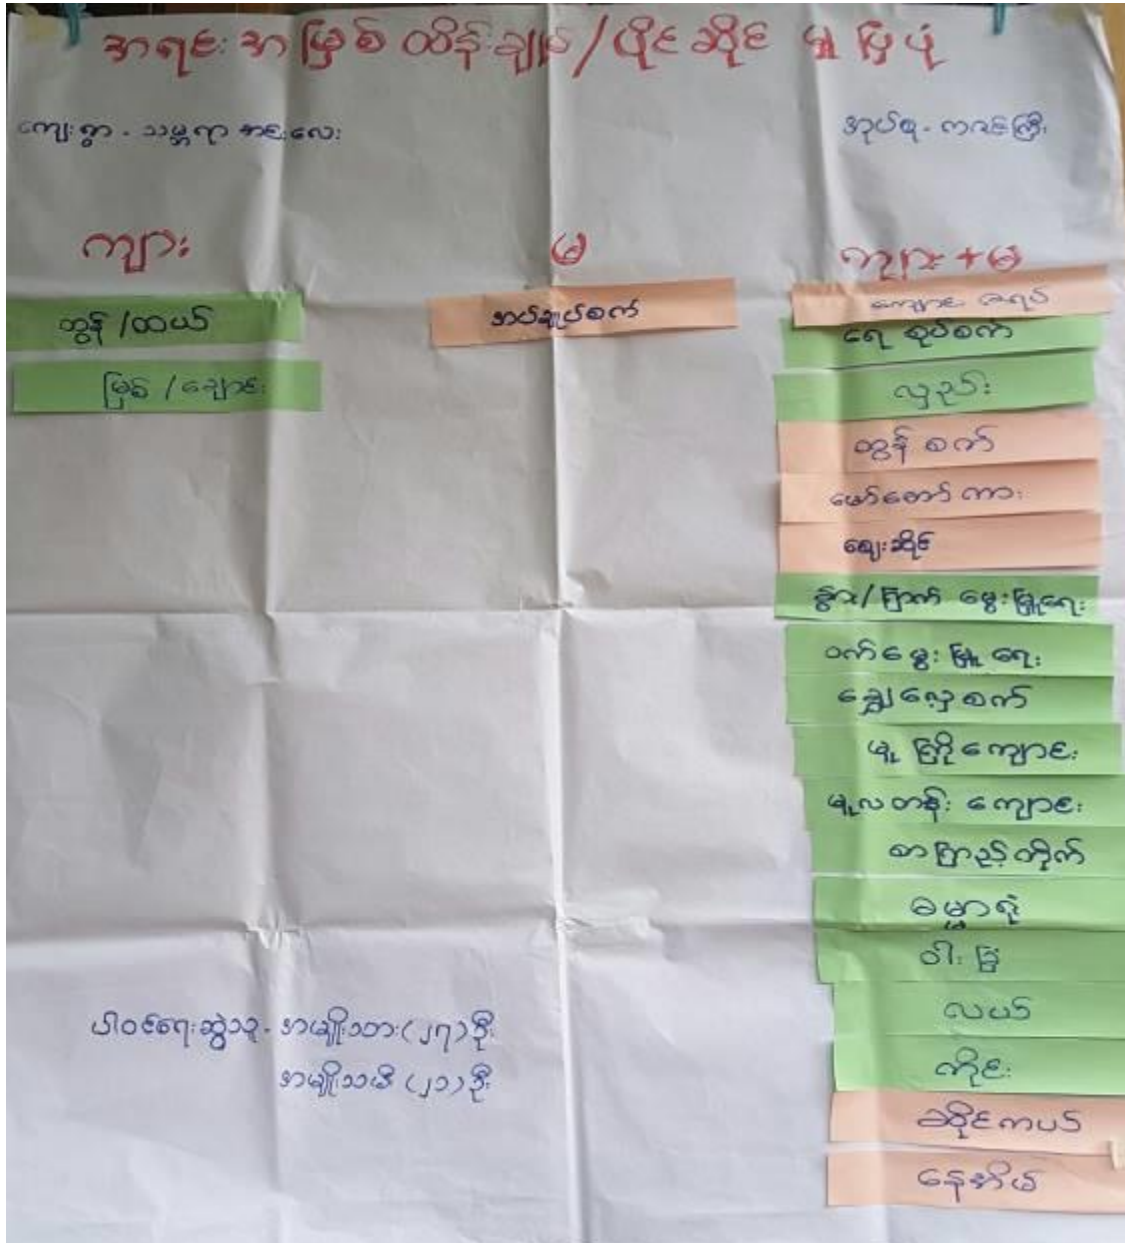 အရင်းအမြစ် ထိန်းချုပ်/ပိုင်ဆိုင်မှု ပြပုံ
ကျေးရွာ - သမ္ဘာရာ ဆင်းလေး
အုပ်စု - ကဇင်ကြီး
ကျား
မ
ကျား+မ
ထွန်/ထယ်
မြစ်/ချောင်း
အပ်ချုပ်စက်
ရေစုပ်စက်
လှည်း
ထွန်စက်
မော်တော်ကား
ဈေးဆိုင်
နွား/မြောက် မွေးမြူရေး
ဝက်မွေးမြူရေး
ချွေလှေ့စက်
မူကြိုကျောင်း
မူလတန်းကျောင်း
စာကြည့်တိုက်
ဓမ္မာရုံ
ဝါးခြံ
လယ်
ကိုင်း
ဆိုင်ကယ်
နေအိမ်
ပါဝင်ရေးဆွဲသူ - အမျိုးသား(၂၇)ဦး
အမျိုးသမီး(၂၁)ဦး